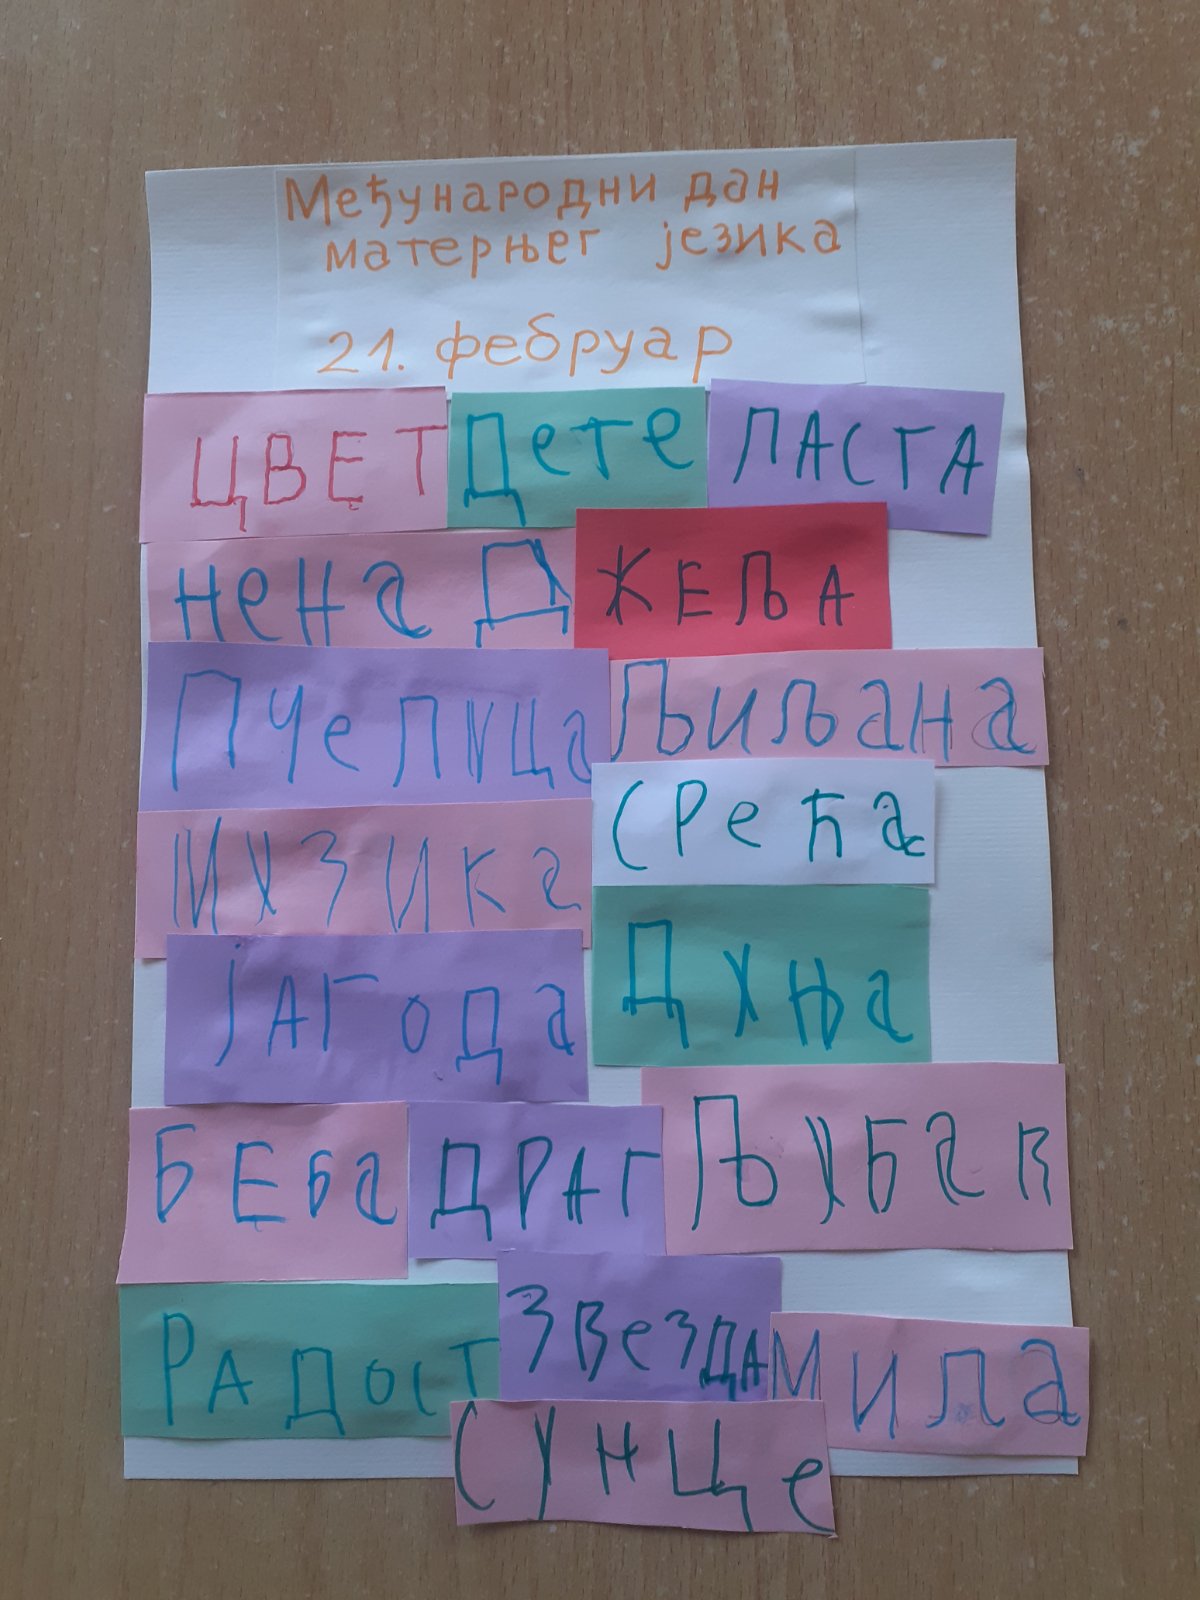 Међународни дан
матерњег језика
21. фебруар
ЦВЕТ Дете ЛАСТА
неНаД ЖЕЉА
Пчелица Љиљана
Срећа
Музика
Дуња
јАГода
БЕба ДРАГ Љубав
РАДОСТ ЗвеЗДА Мила
Сунце